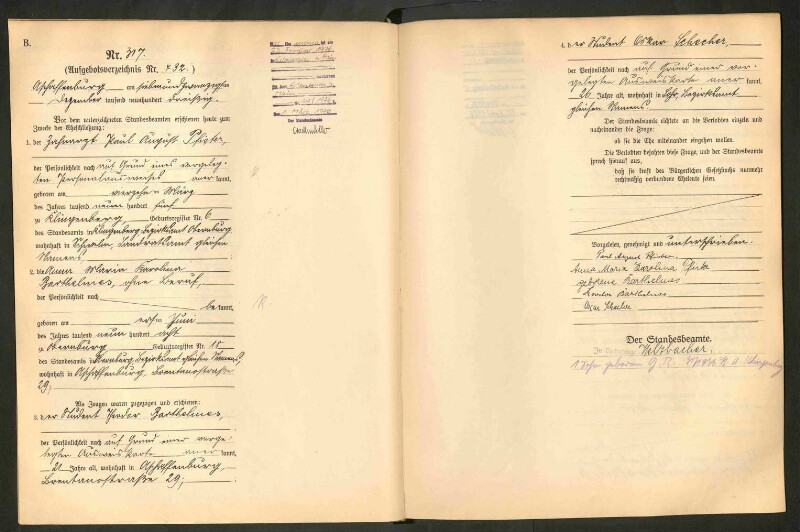 B.
Nr. 317.
(Aufgebotsverzeichnis Nr. 432.)
Aschaffenburg am siebenundzwanzigsten
Dezember tausend neunhundert dreißig.
Vor dem unterzeichneten Standesbeamten erschienen heute zum
Zwecke der Eheschließung:
1. der Zahnarzt Paul August Pfister,
der Persönlichkeit nach auf Grund eines vorgeleg-
ten Personalausweises anerkannt,
geboren am vierzehnten März
des Jahres tausend neun hundert fünf
zu Klingenberg, Geburtsregister Nr. 6
des Standesamts in Klingenberg, Bezirksamt Obernburg
wohnhaft in Landratsamt gleichen
Namens;
2. die Anna Maria Karolina
Barthelmes, ohne Beruf,
der Persönlichkeit nach
bekannt,
geboren am ersten Juni
des Jahres tausend neun hundert acht
zu Obernburg Geburtsregister Nr. 15
des Standesamts in Obernburg, Bezirksamt gleichen Namens,
wohnhaft in Aschaffenburg, Brentanostraße
29;
Als Zeugen waren zugezogen und erschienen:
3. der Student Theodor Barthelmes,
der Persönlichkeit nach auf Grund einer vorge-
legten Ausweiskarte anerkannt,
21 Jahre alt, wohnhaft in Aschaffenburg,
Brentanostraße 29;
Der Standesbeamte
4. der Student Oskar Schecher,
der Persönlichkeit nach auf Grund einer vor-
gelegten Ausweiskarte anerkannt,
26 Jahre alt, wohnhaft in Lohr, Bezirksamt
gleichen Namens.
Der Standesbeamte richtete an die Verlobten einzeln und
nacheinander die Frage:
ob sie die Ehe miteinander eingehen wollen.
Die Verlobten bejahten diese Frage, und der Standesbeamte
sprach hierauf aus,
daß sie kraft des Bürgerlichen Gesetzbuchs nunmehr
rechtmäßig verbundene Eheleute seien.
Vorgelesen, genehmigt und unterschrieben.
Paul August Pfister
Anna Maria Karolina Pfister
geborene Barthelmes
Theodor Barthelmes
Oskar Schecher
Der Standesbeamte.
In Vertretung: Velzbacher.
1 Sohn geboren